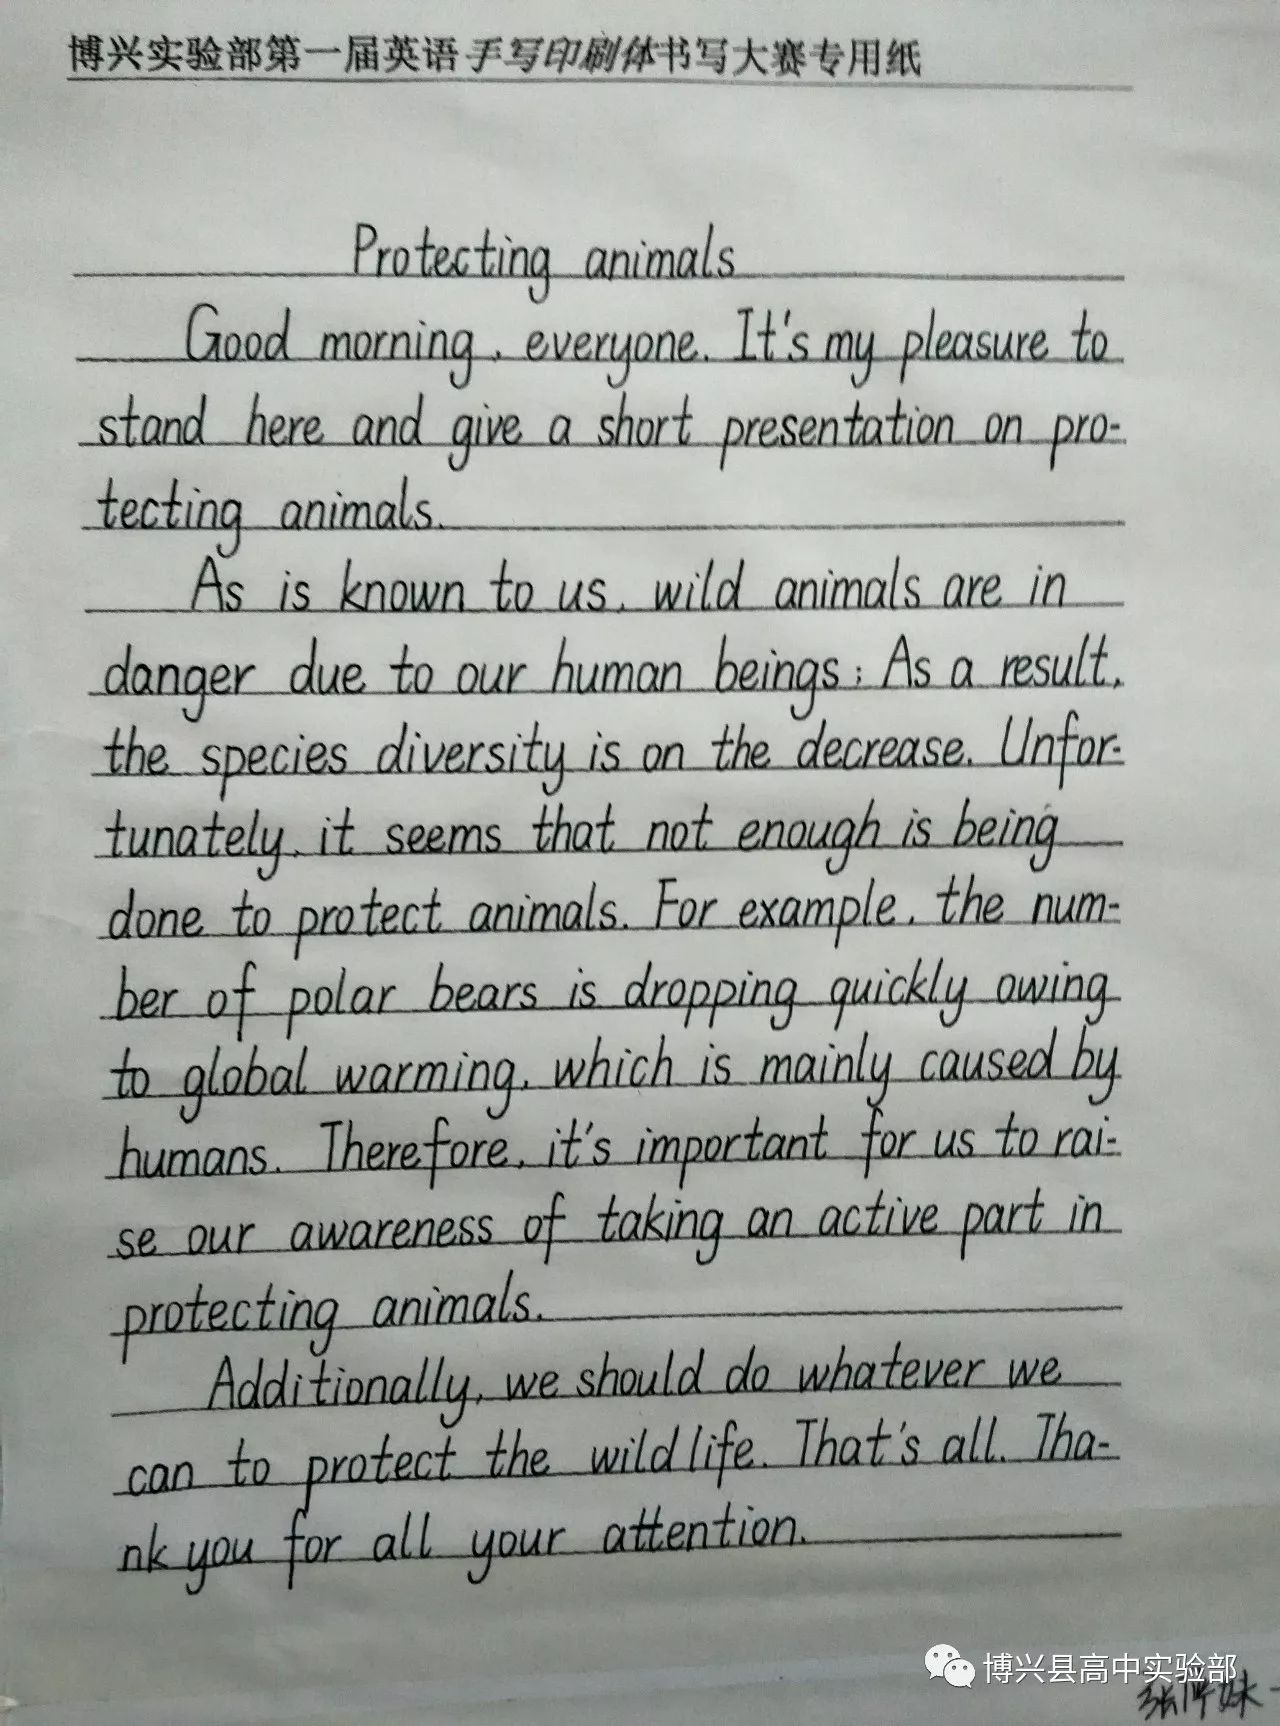 博兴实验部第一届英语手写印刷体书写大赛专用纸
Protecting animals
Good morning, everyone. It's my pleasure to
stand here and give a short presentation on pro-
tecting animals.
As is known to us, wild animals are in
danger due to our human beings; As a result,
the species diversity is on the decrease. Unfor-
tunately, it seems that not enough is being
done to protect animals. For example, the num-
ber of polar bears is dropping quickly owing
to global warming, which is mainly caused by
humans. Therefore, it's important for us to rai-
se our awareness of taking an active part in
protecting animals.
Additionally, we should do whatever we
can to protect the wildlife. That's all. Tha-
nk you for all your attention.
博兴县高中实验部